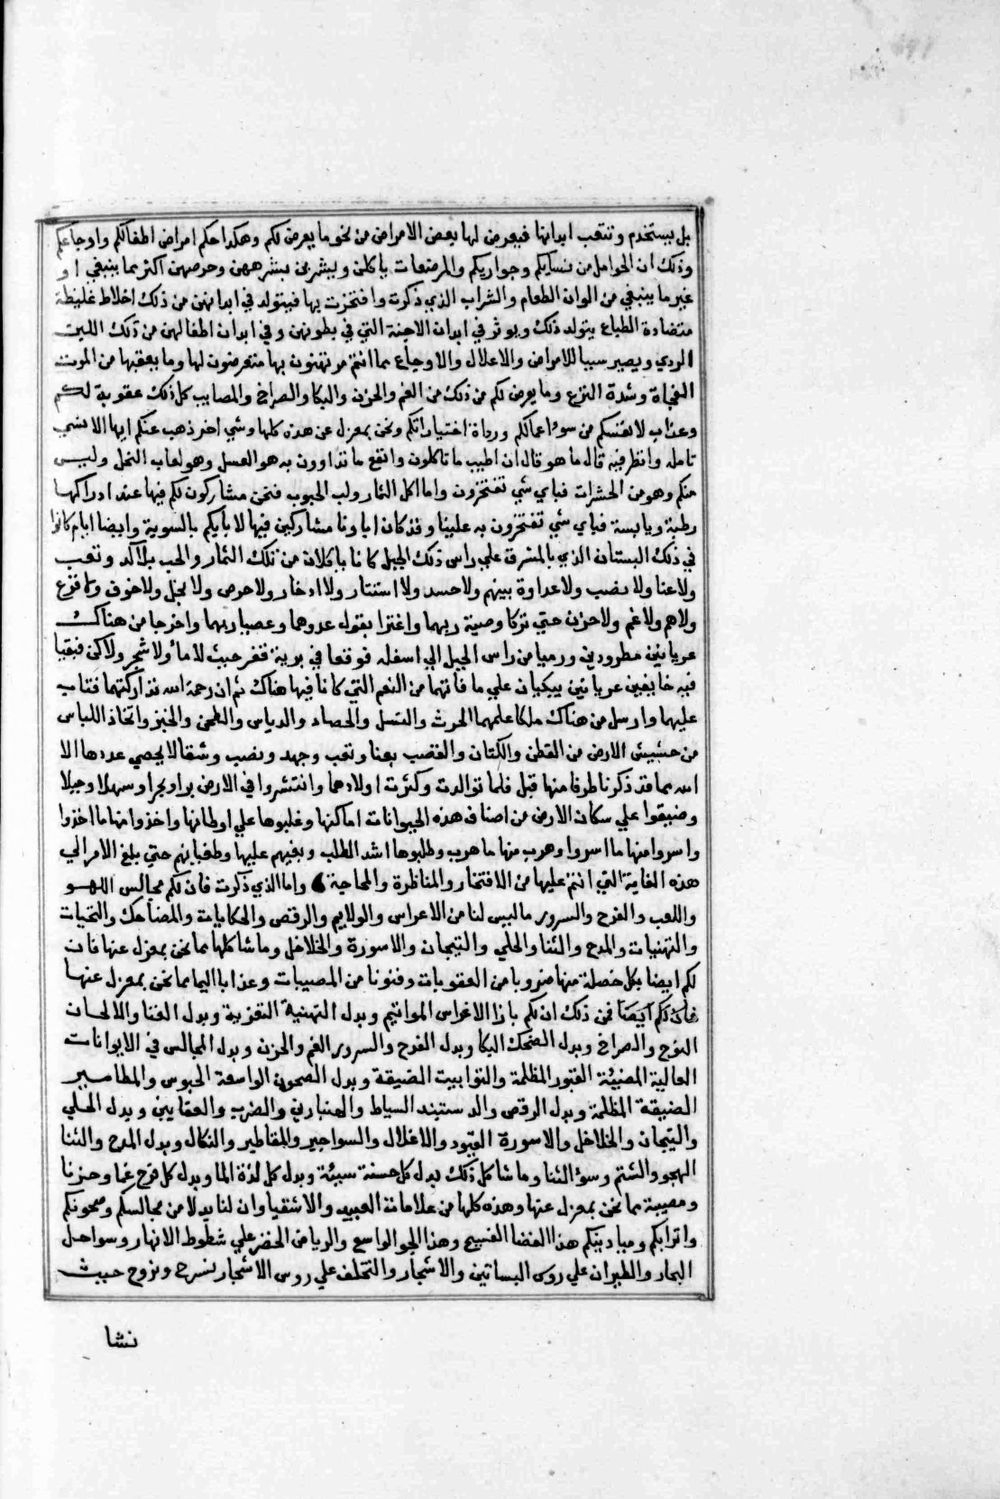 بل يستخدم وتتعب ابدانها فيعرض لها بعض الامراض من نحو ما يعرض لكم وهكذا حكم امراض اطفالكم واوجاعكم
وذلك ان الحوامل من نسايكم وجواريكم والمرضعات ياكلن ويشربن بشرههن وحرصهن اكثر مما ينبغي او
غير ما ينبغي من الوان الطعام والشراب الذي ذكرت وافتخرت بها فيتولد في ابدانهن من ذلك اخلاط غليظة
متضادة الطباع يتولد ذلك ويوثر في ابدان الاجنة التي في بطونهن وفي ابدان اطفالهن من ذلك اللبن
الردي ويصير سببا للامراض والاعلال والاوجاع مما انتم مرتهنون بها متعرضون لها وما يعقبها من الموت
الفجاة وشدة النزع وما يعرض لكم من ذلك من الغم والحزن والبكا والصراخ والمصايب كل ذلك عقوبة لكم
وعذاب لانفسكم من سوء اعمالكم ورداة اختياراتكم ونحن بمعزل عن هذه كلها وشي اخر ذهب عنكم ايها الانسي
تامله وانظر فيه قال ما هو قال ان اطيب ما تاكلون وانفع ما تداوون به هو العسل وهو لعاب النحل وليس
منكم وهو من الحشرات فباي شي تفتخرون واما اكل الثمار ولب الحبوب فنحن مشاركون لكم فيها عند ادراكها
رطبة ويابسة فباي شي تفتخرون به علينا وقد كان اباونا مشاركين فيها لابايكم بالسوية وايضا ايام كانوا
في ذلك البستان الذي بالمشرق علي راس ذلك الجبل كانا ياكلان من تلك الثمار والحب بلا كد وتعب
ولا عنا ولا نصب ولا عداوة بينهم ولا حسد ولا استتار ولا ادخار ولا حرص ولا بخل ولا خوف ولا فزع
ولا هم ولا غم ولا حزن حتي تركا وصية ربهما واغترا بقول عدوهما وعصيا ربهما واخرجا من هناك
عريانين مطرودين ورميا من راس الجبل الي اسفله فوقعا في برية قفر حيث لا ماء ولا شجر ولا كن فبقيا
فيه خايفين عريانين يبكيان علي ما فاتهما من النعم التي كانا فيها هناك ثم ان رحمة الله تداركتهما فتاب
عليهما وارسل من هناك ملكا علمهما الحرث والغسل والحصاد والدياس والطحن والخبز واتخاذ اللباس
من حشيش الارض من القطن والكتان والقصب بعنا وتعب وجهد ونصب وشقا لا يحصي عددها الا
الله مما قد ذكرنا طرفا منها قبل فلما توالدت وكثرت اولادهما وانتشروا في الارض برا وبحرا وسهلا وجبلا
وضيقوا علي سكان الارض من اصناف هذه الحيوانات اماكنها وغلبوها علي اوطانها واخذوا منها ما اخذوا
واسروا منها ما اسروا وهرب منها ما هرب وطلبوها اشد الطلب وبغيهم عليها وطغيانهم حتي بلغ الامر الي
هذه الغاية التي انتم عليها من الافتخار والمناظرة والمحاجة واما الذي ذكرت فان لكم مجالس اللهو
واللعب والفرح والسرور ما ليس لنا من الاعراس والولايم والرقص والحكايات والمضاحك والتحيات
والتهنيات والمدح والثنا والحلي والتيجان والاسورة والخلاخل وما شاكلها مما نحن بمعزل عنها فان
لكم ايضا بكل خصلة منها ضروبا من العقوبات وفنونا من المصيبات وعذابا اليما مما نحن بمعزل عنها
فان لكم ايضا فمن ذلك ان لكم بازا الاعراس المواتيم وبدل التهنية التعزية وبدل الغنا والالحان
النوح والصراخ وبدل الضحك البكا وبدل الفرح والسرور الغم والحزن وبدل المجالس في الايوانات
العالية المضيئة القبور المظلمة والتوابيت الضيقة وبدل الصحون الواسعة الحبوس والمطامير
الضيقة المظلمة وبدل الرقص والدستبند السياط والضرب والعقابين وبدل الحلي
والتيجان والخلاخل والاسورة القيود والاغلال والسواجير والمقاطير والنكال وبدل المدح والثنا
الهجو والشتم وسوء الثنا وما شاكل ذلك بدل كل حسنة سيئة وبدل كل لذة الما وبدل كل فرح غما وحزنا
ومصيبة مما نحن بمعزل عنها وهذه كلها من علامات العبيد والاشقيا وان لنا بدلا من مجالسكم وصحونكم
وميادينكم هذا الفضا الفسيح وهذا الجو الواسع والرياض الخضر علي شطوط الانهار وسواحل
البحار والطيران علي روس البساتين والاشجار والتحلف علي روس الاشجار نسرح ونروح حيث
نشا